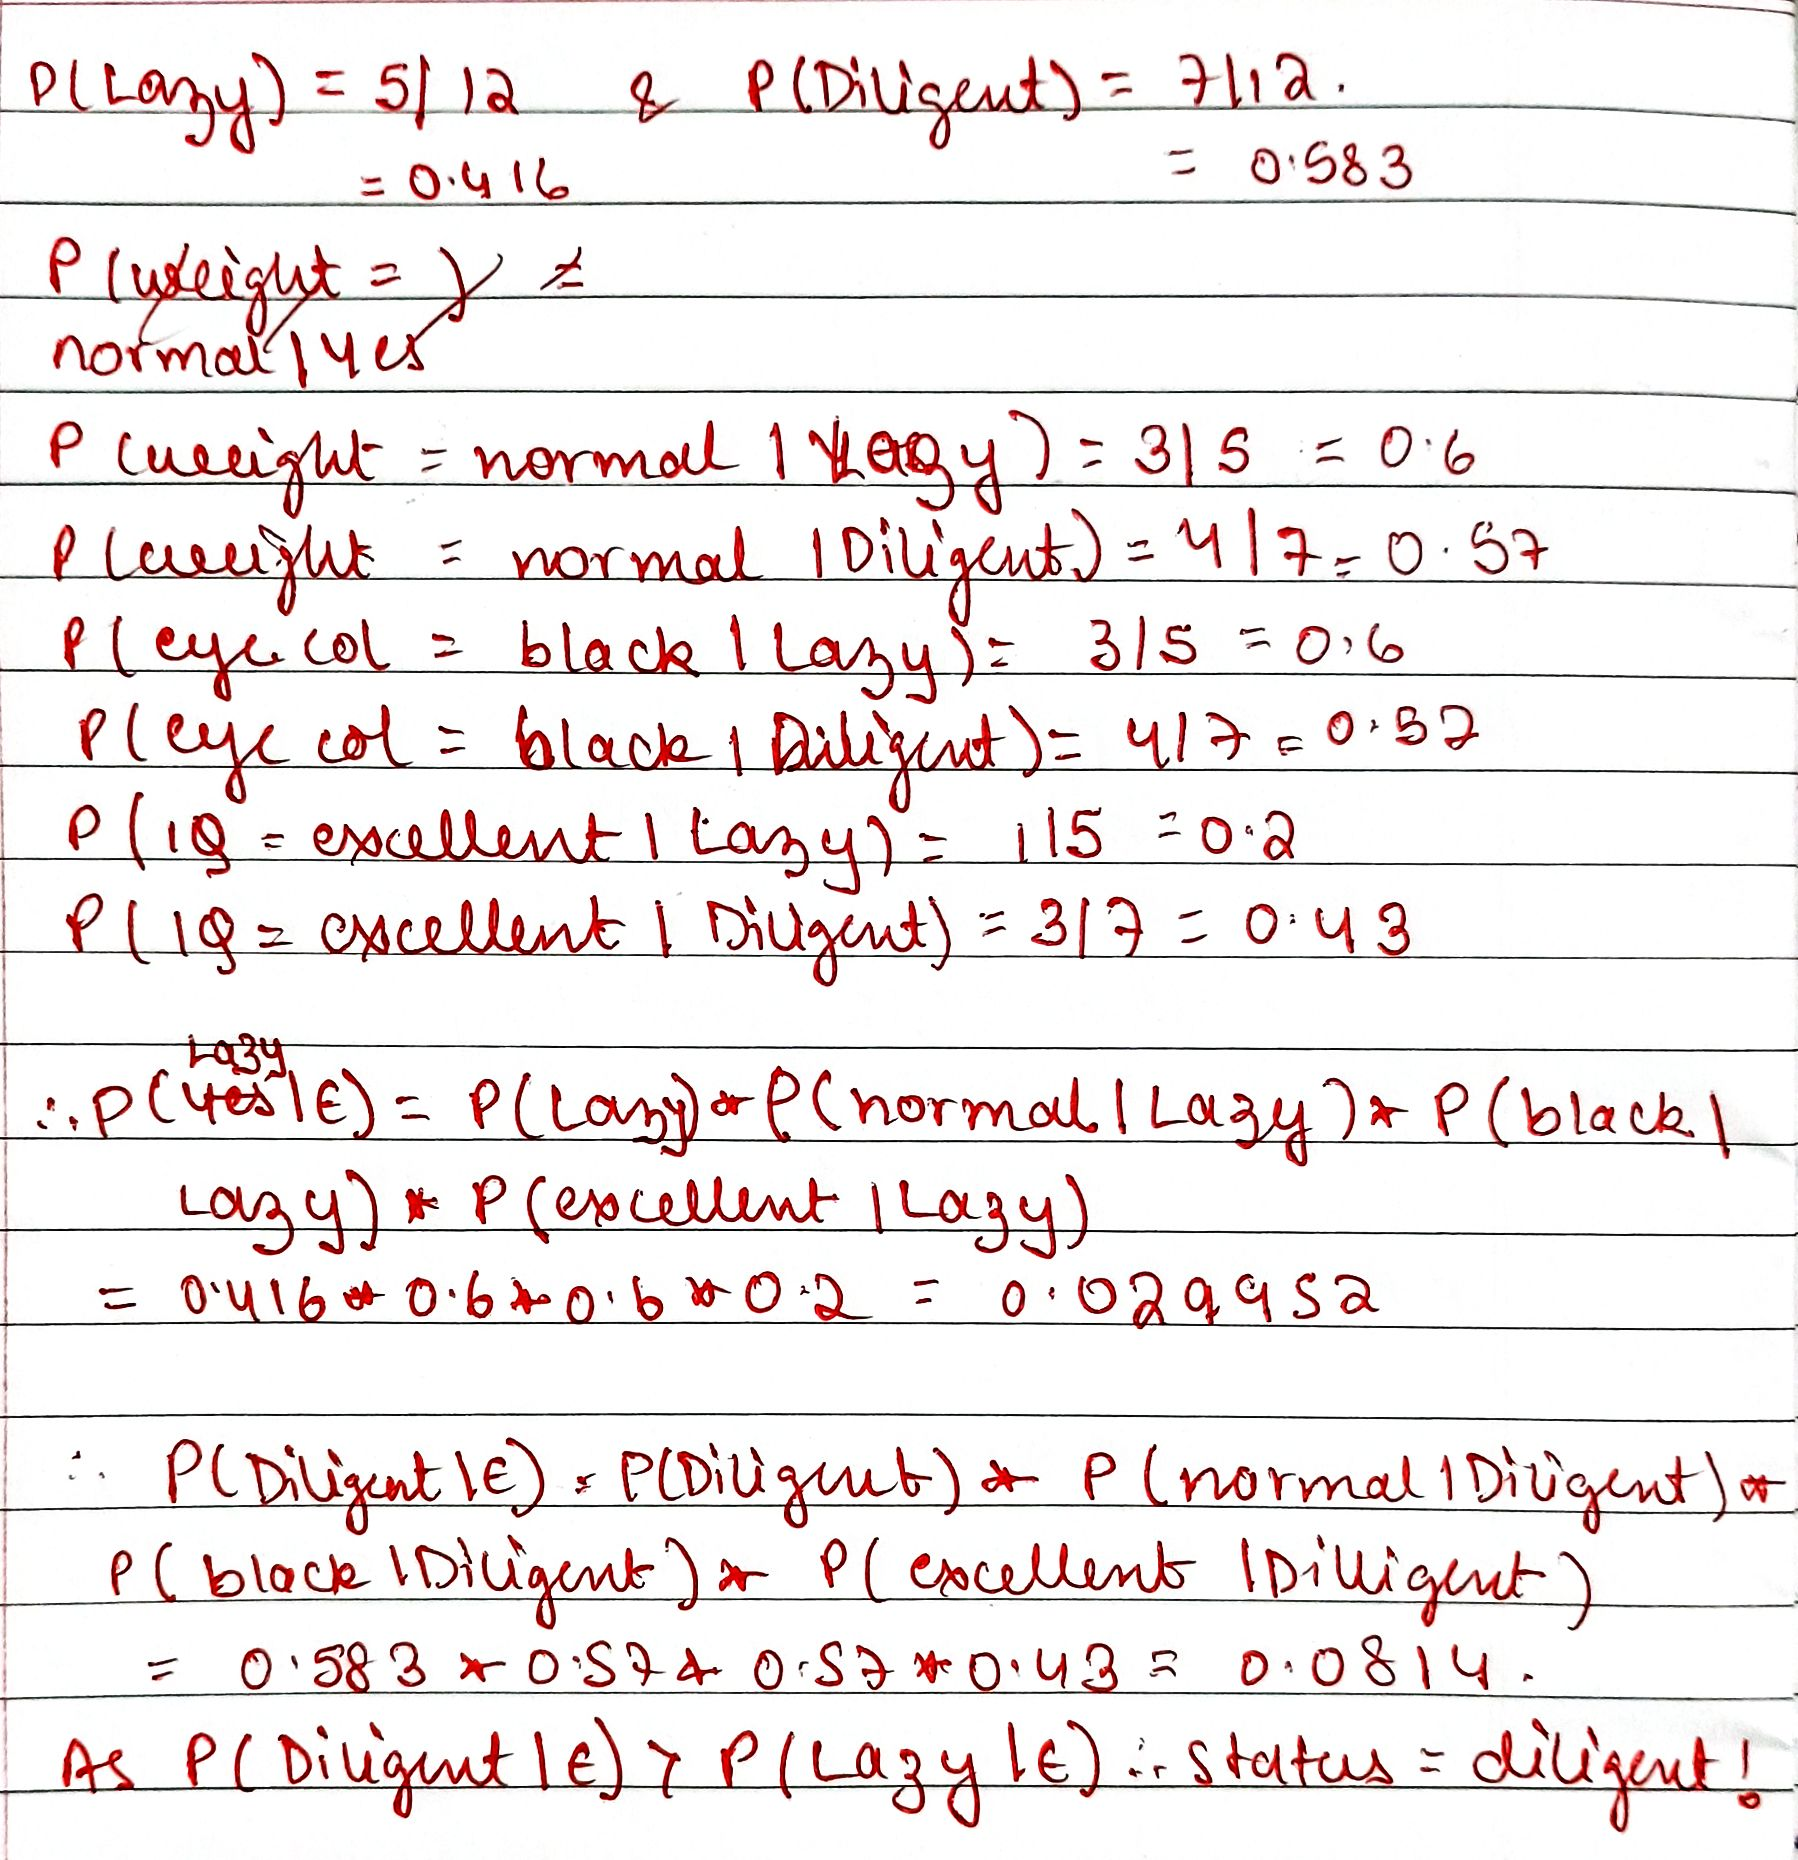 P(Lazy) = 5/12 & P(Diligent) = 7/12.
= 0.416 = 0.583
P(weight = ) =
normal | Yes
P(weight = normal | Lazy) = 3/5 = 0.6
P(weight = normal | Diligent) = 4/7 = 0.57
P(eye col = black | Lazy) = 3/5 = 0.6
P(eye col = black | Diligent) = 4/7 = 0.57
P(IQ = excellent | Lazy) = 1/5 = 0.2
P(IQ = excellent | Diligent) = 3/7 = 0.43
Lazy
∴ P(Yes|E) = P(Lazy) * P(normal | Lazy) * P(black |
Lazy) * P(excellent | Lazy)
= 0.416 * 0.6 * 0.6 * 0.2 = 0.029952
∴ P(Diligent|E) = P(Diligent) * P(normal | Diligent) *
P(black | Diligent) * P(excellent | Dilligent)
= 0.583 * 0.57 * 0.57 * 0.43 = 0.0814.
As P(Diligent | E) > P(Lazy | E) ∴ status = diligent!